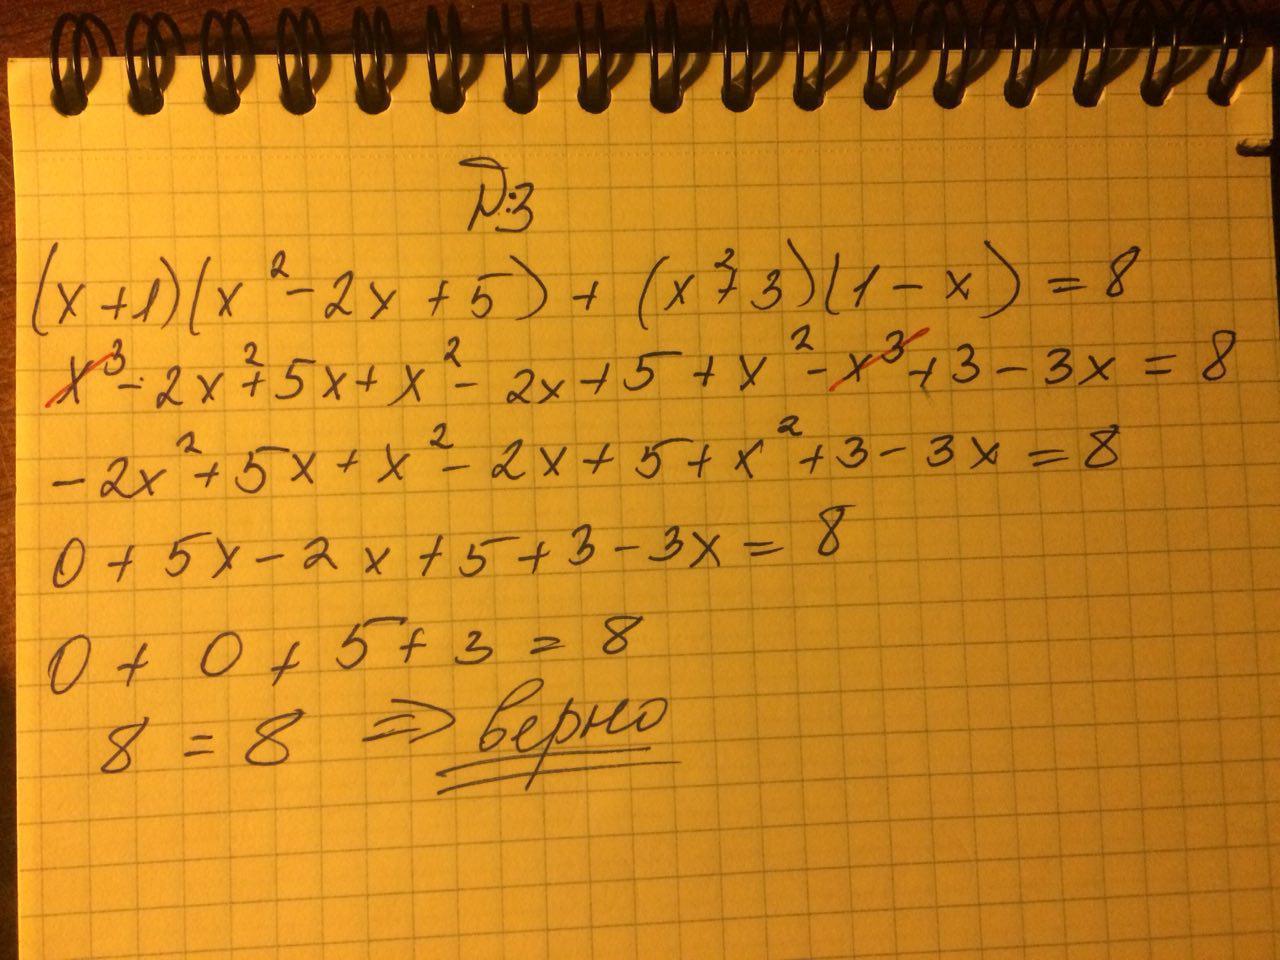 Д.З
(x+1)(x²-2x+5)+(x²+3)(1-x)=8
x³-2x²+5x+x²-2x+5+x²-x³+3-3x=8
-2x²+5x+x²-2x+5+x²+3-3x=8
0+5x-2x+5+3-3x=8
0+0+5+3=8
8=8 => верно